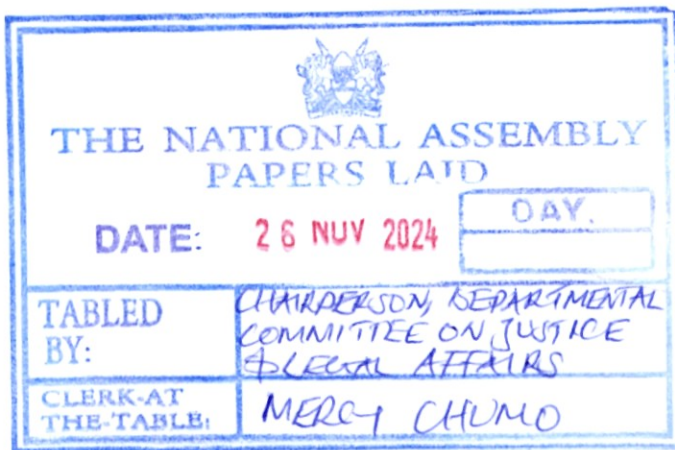 THE NATIONAL ASSEMBLY
PAPERS LAID
DATE: 26 NOV 2024 DAY.
TABLED BY: CHAIRPERSON, DEPARTMENTAL
COMMITTEE ON JUSTICE
& LEGAL AFFAIRS
CLERK-AT THE-TABLE: MERCY CHUMO